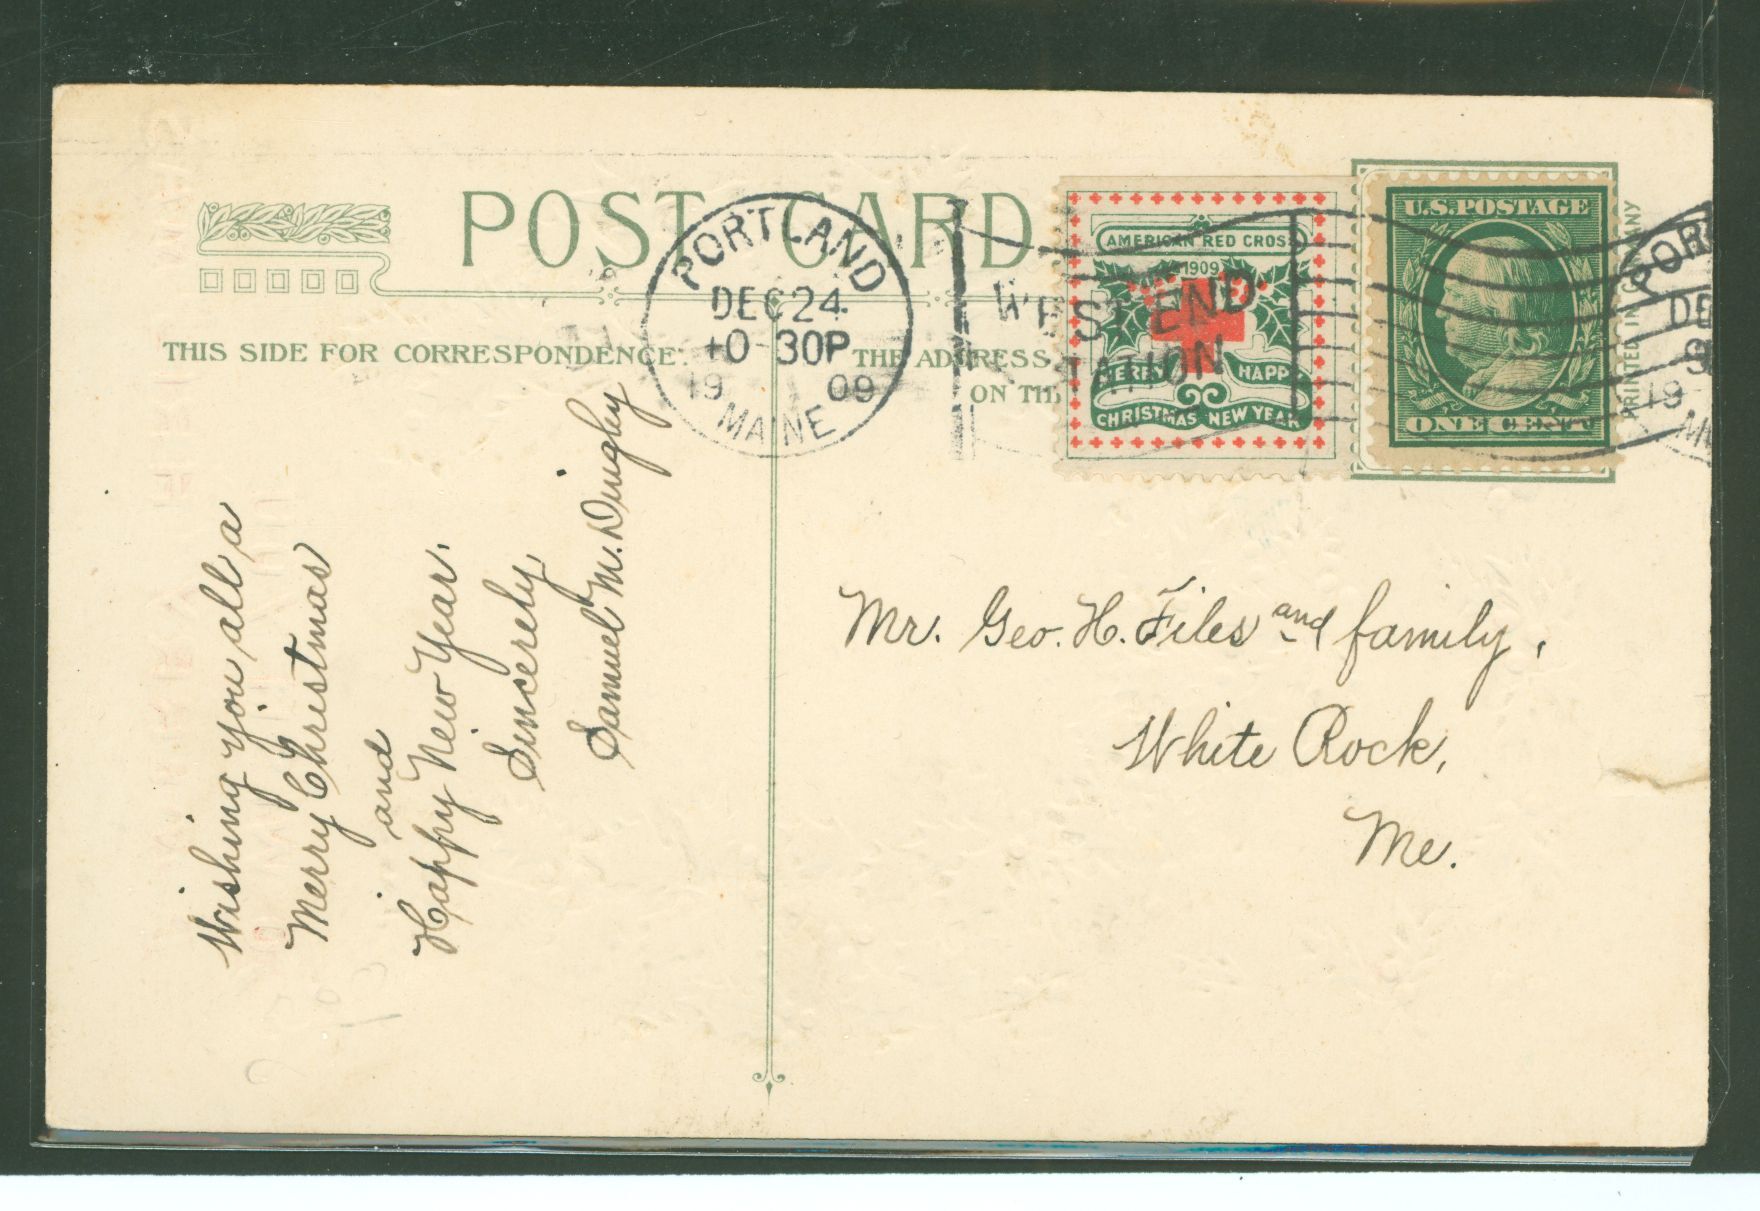 POST CARD
THIS SIDE FOR CORRESPONDENCE.
THE ADDRESS
ON TH
PORTLAND
DEC 24
10-30P
1909
MAINE
WEST END
STATION
AMERICAN RED CROSS
1909
MERRY HAPPY
CHRISTMAS NEW YEAR
U.S.POSTAGE
ONE CENT
PRINTED IN GERMANY
POR
DE
19
Wishing you all a
Merry Christmas
and
Happy New Year.
Sincerely
Samuel M. Dingley
Mr. Geo. H. Files and family,
White Rock,
Me.